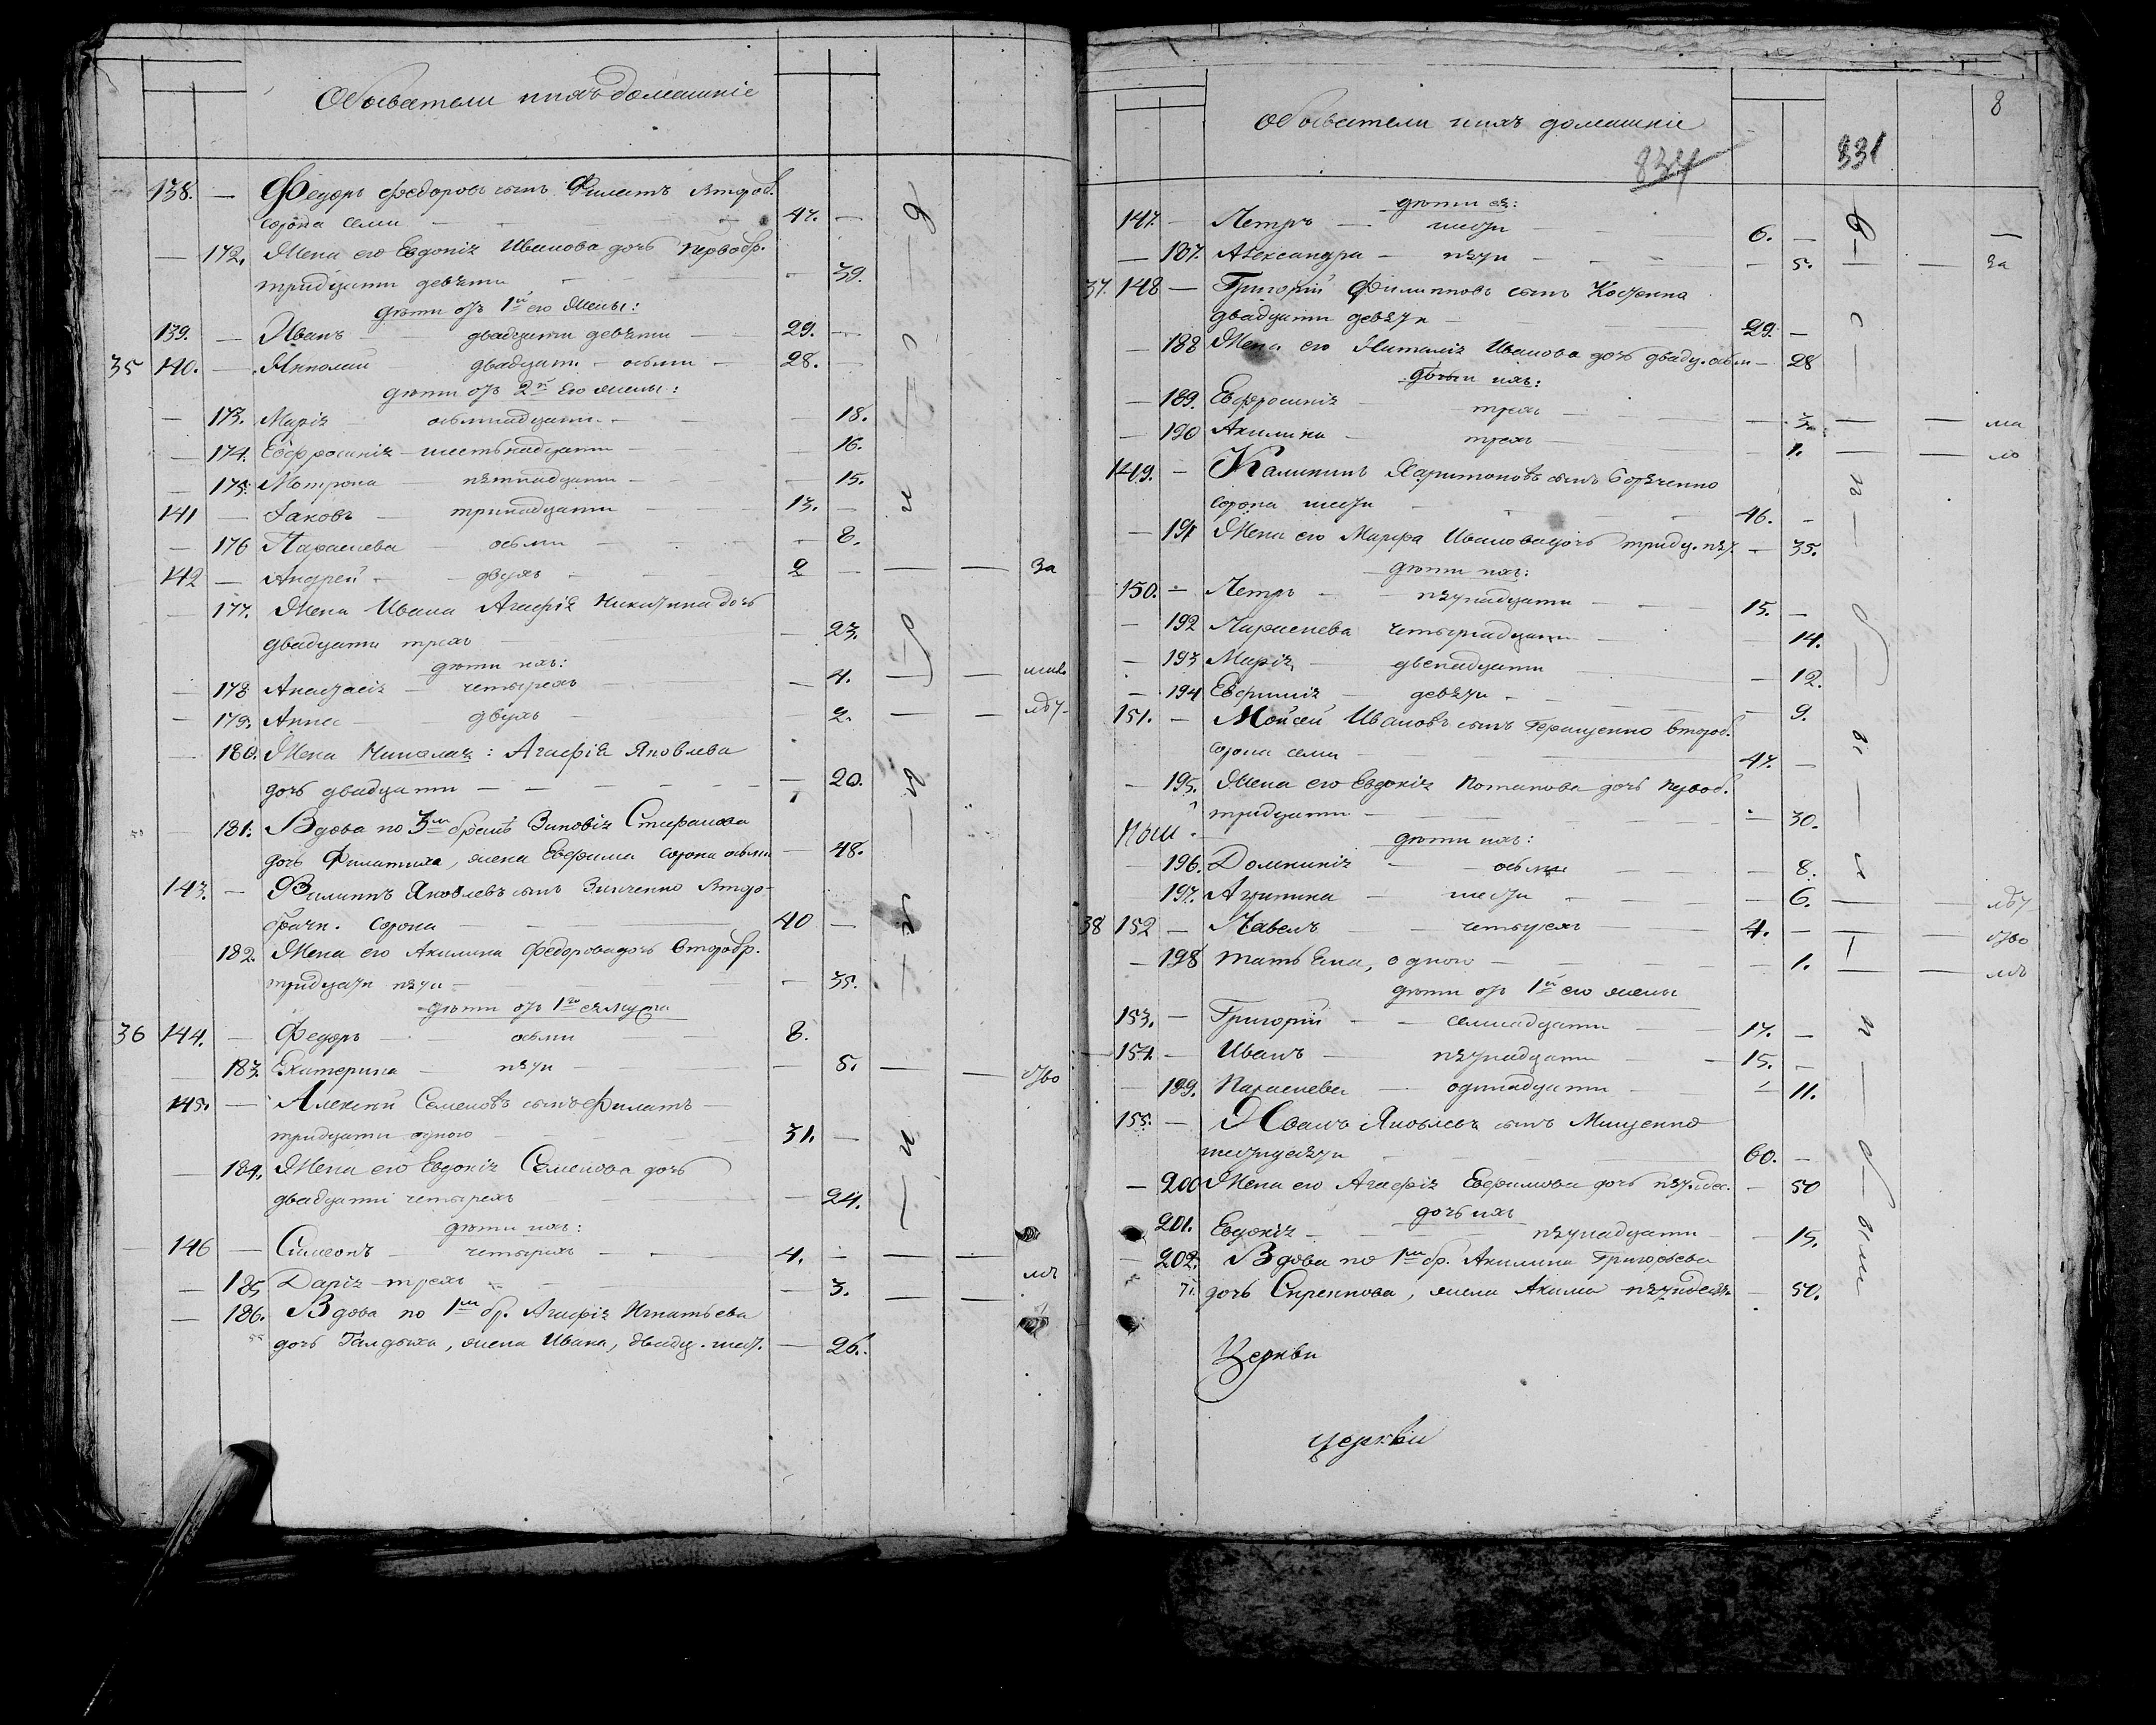 Обыватели и ихъ домашніе
138. — Федоръ Федоровъ сынъ Филатъ второб.
сорока семи — 47. —
— 172. Жена его Евдокія Иванова дочь первобр.
тридцати девяти — 39.
дѣти отъ 1й его жены:
139. — Иванъ — двадцати девяти — 29. —
35 140. — Николай двадцати осьми — 28. —
дѣти отъ 2й его жены:
— 173. Марія осьмнадцати — 18.
— 174. Евфросинія шестьнадцати — 16.
— 175. Мотрона пятнадцати — 15.
141 — Іаковъ — тринадцати — 13. —
— 176 Параскева — осьми — 8.
142 — Андрей — двухъ — 2 — за
— 177. Жена Ивана Агафія Никитина дочь
двадцати трехъ — 23.
дѣти ихъ:
— 178 Анастасія — четырехъ — 4.
— 179. Анна — двухъ — 2.
— 180. Жена Николая: Агафія Яковлева
дочь двадцати — 20.
181. Вдова по 3м бракѣ Зиновія Стефанова
дочь Филатиха, жена Ефима сорока осьми — 48.
143. — Филиппъ Яковлевъ сынъ Зинченко второ-
брачн. сорока — 40 —
182. Жена его Акилина Федорова дочь второбр.
тридцати пяти — 35.
дѣти отъ 1го ея мужа
36 144. — Федоръ — осьми — 8.
— 183. Екатерина — пяти — 5. — ство
145. — Алексѣй Семеновъ сынъ Филатъ —
тридцати одного — 31. —
— 184. Жена его Евдокія Семенова дочь
двадцати четырехъ — 24.
дѣти ихъ:
146 — Симеонъ — четырехъ — 4. —
— 185 Дарія — трехъ — 3. —
— 186. Вдова по 1м бр. Агафія Игнатьева
дочь Галдыха, жена Ивана, двадц. шест. — 26.
8
Обыватели и ихъ домашніе
834 331
дѣти ея:
147. — Петръ — шести — 6. —
— 187. Александра — пяти — 5. — за
37. 148 — Григорій Филипповъ сынъ Костенко
двадцати девяти — 29. —
— 188 Жена его Наталія Иванова дочь двадц. осьм — 28
дѣти ихъ:
— 189. Евфросинія трехъ — 3.
— 190 Акилина — трехъ — 1.
149. — Калиникъ Харитоновъ сынъ
сорока шести — 46. —
— 191 Жена его Марфа Иванова дочь тридц. пят. — 35.
дѣти ихъ:
150. — Петръ — пятнадцати — 15. —
— 192 Параскева четырнадцати — 14.
— 193 Марія — двенадцати — 12.
— 194 Евфимія — девяти — 9.
151. — Мойсей Ивановъ сынъ Геращенко второб.
сорока семи — 47. —
— 195. Жена его Евдокія Потапова дочь первоб.
тридцати — 30.
дѣти ихъ:
— 196. Домникія — осьми — 8.
197. Агрипина — шести — 6.
38 152 — Павелъ — четырехъ — 4. — ство
— 198 Татьяна, одного — 1.
дѣти отъ 1й его жены
153. — Григорій — семнадцати — 17. —
154. — Иванъ — пятнадцати — 15. —
— 199. Параскева — одинадцати — 11.
155. — Иванъ Яковлевъ сынъ Мищенко
шестидесяти — 60. —
— 200 Жена его Агафія Евфимова дочь пятидес. — 50
дочь ихъ
201. Евдокія — пятнадцати — 15.
— 202. Вдова по 1м бр. Акилина Григорьева
дочь Сиренкова, жена Акима пятидесят. — 50.
Церкви
церкви